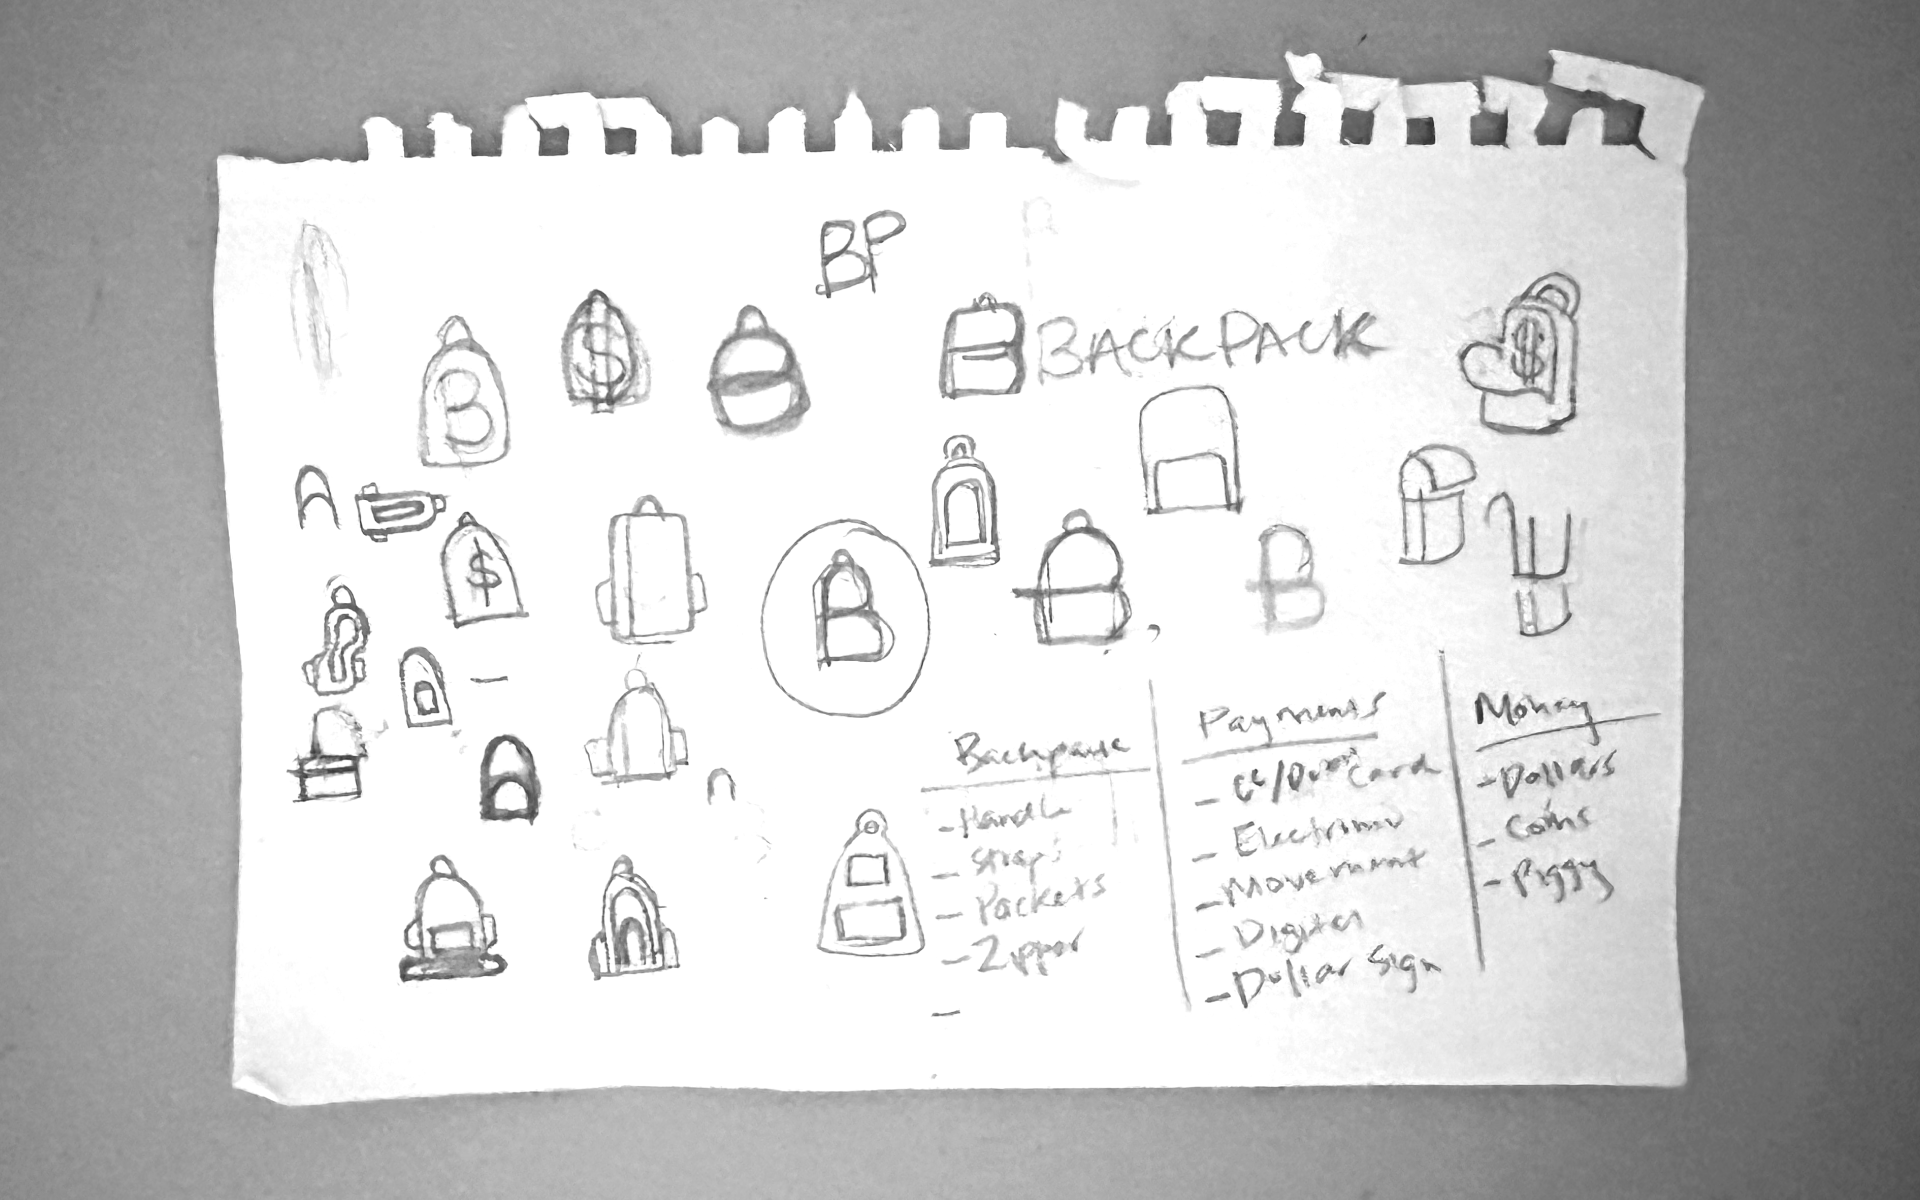 BP
$
B
BACKPACK
$
$
B
B
B
Backpack
- Handle
- Straps
- Pockets
- Zipper
-
Payments
- CC/Debit Card
- Electronic
- Movement
- Digital
- Dollar Sign
Money
- Dollars
- Coins
- Piggy